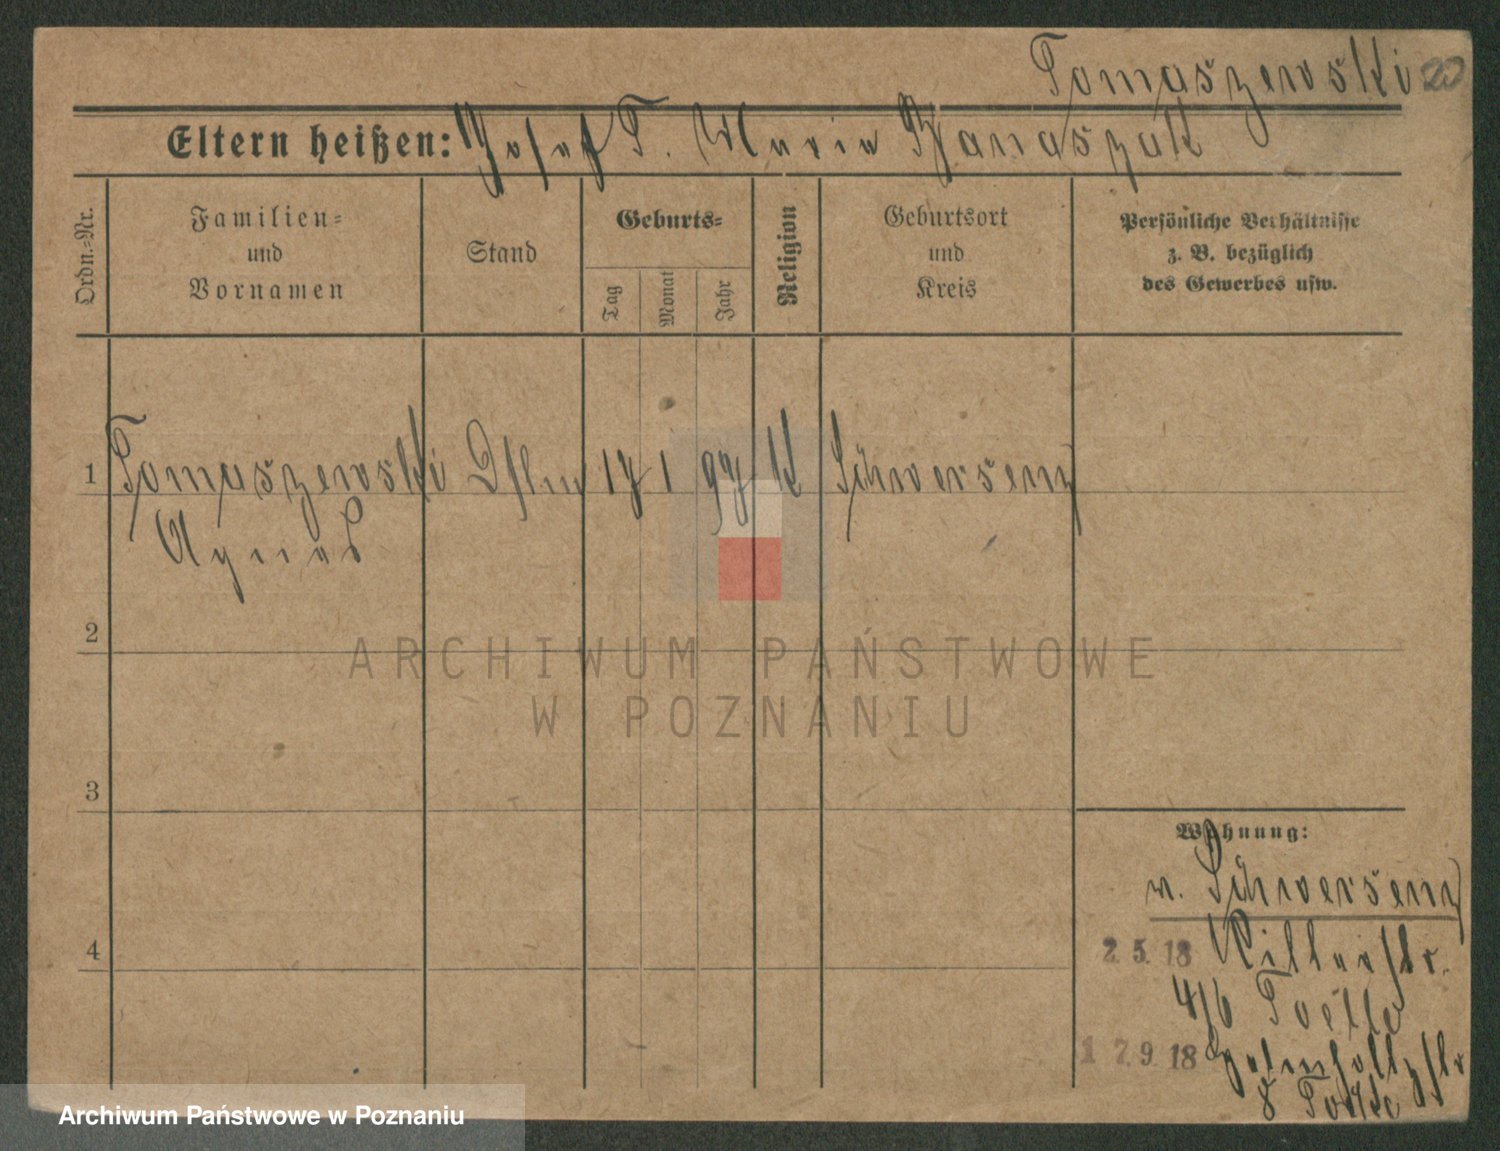 Tomaszewski 20
Eltern heißen: Josef T. Maria Banaszak
Ordn.-Nr.
Familien-
und
Vornamen
Stand
Geburts-
Tag
Monat
Jahr
Religion
Geburtsort
und
Kreis
Persönliche Verhältnisse
z. B. bezüglich
des Gewerbes usw.
1 Tomaszewski 17 1 97 K Schwersenz
Agnes
2
ARCHIWUM PAŃSTWOWE
W POZNANIU
3
Wohnung:
v. Schwersenz
4
2. 5. 18 Ritterstr.
4/6
17. 9. 18
8
Archiwum Państwowe w Poznaniu